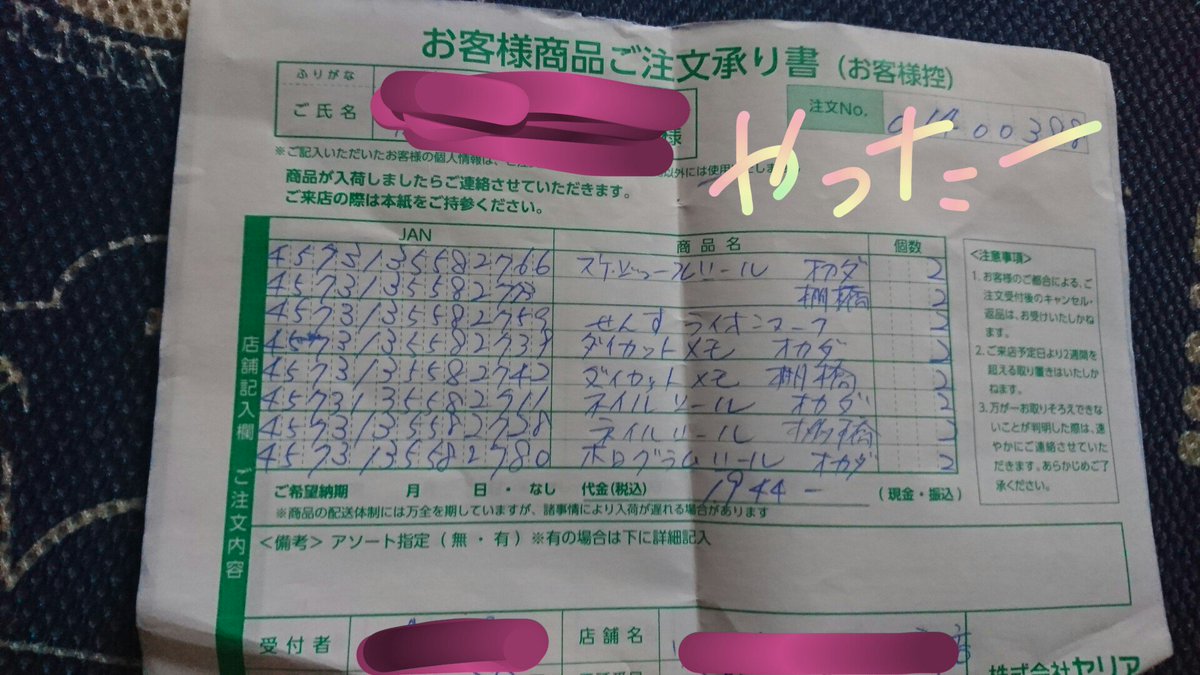 お客様商品ご注文承り書 (お客様控)
ふりがな
ご氏名
様
注文No.
00388
やったー
※ご記入いただいたお客様の個人情報は、
以外には使用
商品が入荷しましたらご連絡させていただきます。
ご来店の際は本紙をご持参ください。
店舗記入欄 ご注文内容
JAN 商品名 個数
4573135582766 オカダ 2
棚橋 2
4573135582759 せんす ライオンマーク 2
ダイカットメモ オカダ 2
4573135582742 ダイカットメモ 棚橋 2
4573135582711 ネイルシール オカダ 2
4573135582728 ネイルシール 棚橋 2
4573135582780 ホログラムシール オカダ 2
ご希望納期 月 日・なし 代金(税込) 1,944- (現金・振込)
※商品の配送体制には万全を期していますが、諸事情により入荷が遅れる場合があります
<注意事項>
1. お客様のご都合による、ご
注文受付後のキャンセル・
返品は、お受けいたしかね
ます。
2. ご来店予定日より2週間を
超える取り置きはいたしか
ねます。
3. 万が一お取りそろえできな
いことが判明した際は、速
やかにご連絡させていた
だきます。あらかじめご了
承ください。
<備考> アソート指定 (無・有) ※有の場合は下に詳細記入
受付者
店舗名
店
株式会社ヤリア